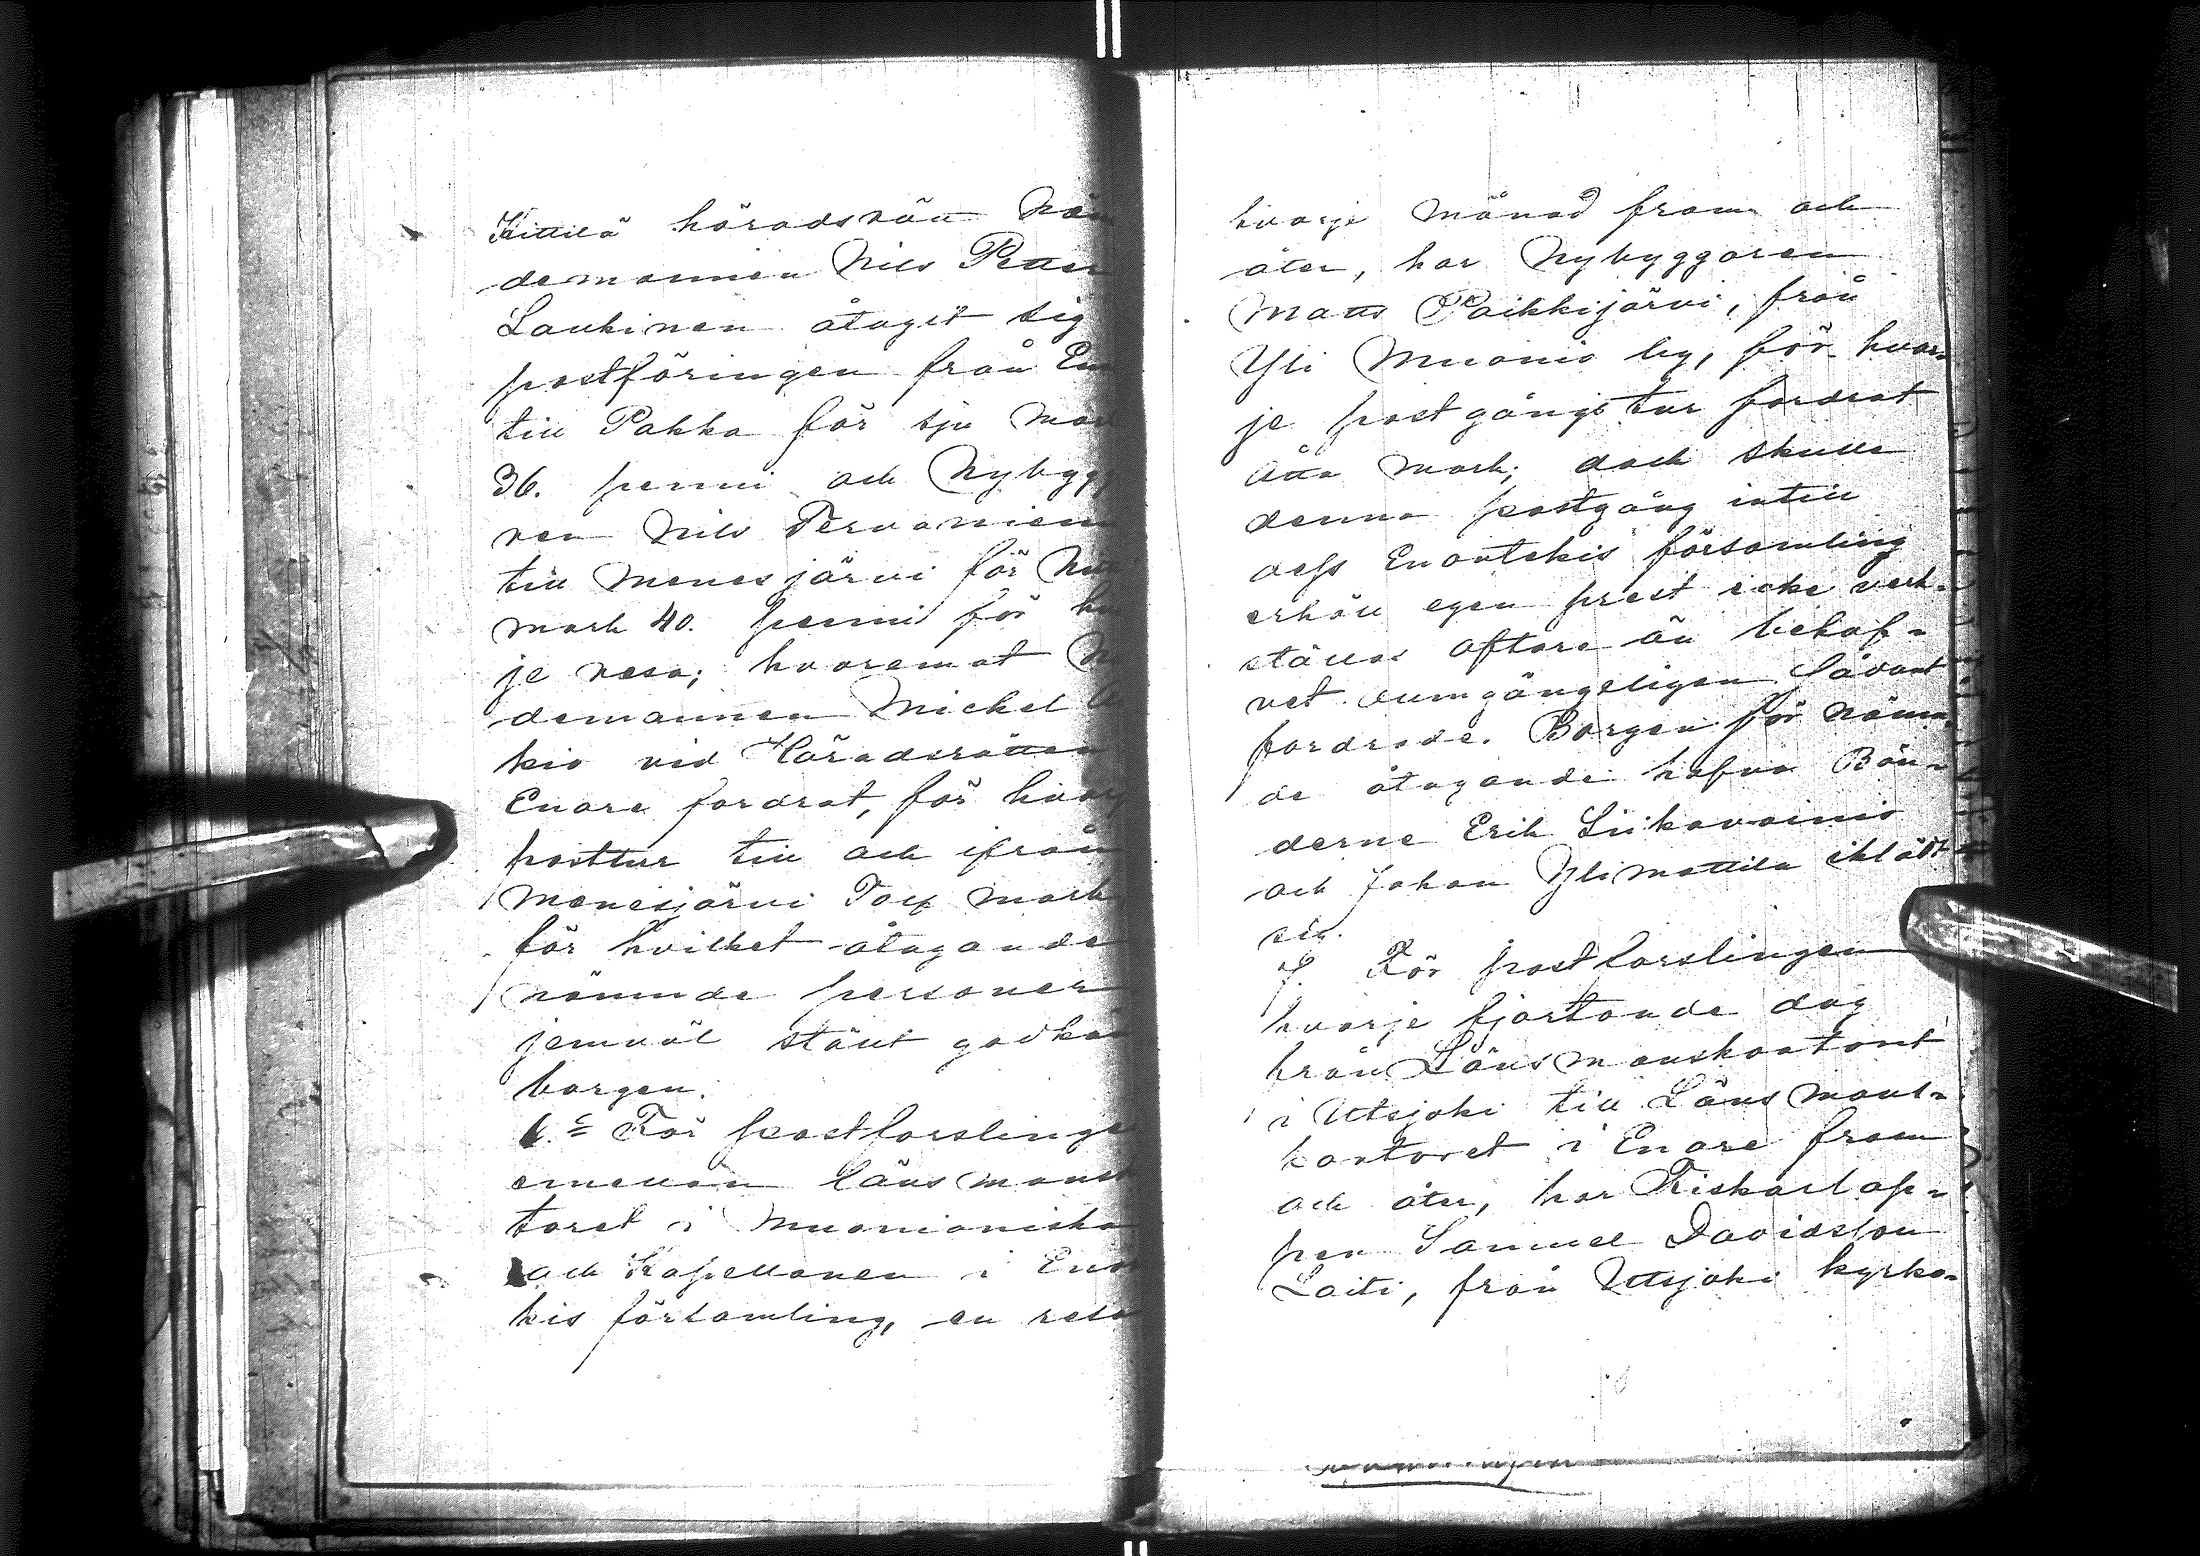 Kittilä häradsrätt Näm
demannen Nils Petter
Laukinen åtagit sig
postföringen från En
till Pakka för sju mar
36. penni och Nybygg
ren Nils Tervanien
till Menesjärvi för
mark 40. penni för
je resa; hvaremot
demannen Michel
kio vid Häradsrätten
Enare fordrat, för hvar
posttur till och ifrån
Menesjärvi Tolf mark
för hvilket åtagande
nämnde personer
jemväl ställt godkän
borgen.
6.º För postforslinge
emellan länsmansk
toret i Muonioniska
och Kapellanen i Eno
kis församling, en resa
hvarje månad fram och
åter, har Nybyggaren
Matts Paikkijärvi, från
Yli Muonio by, för hvar-
je postgångstur fordrat
åtta mark; dock skulle
denna postgång intill
dess Enontekis församling
erhåll egen prest icke verk-
ställas oftare än behof-
vet oumgängeligen sådant
fordrade. Borgen för näm-
de åtagande hafva Bön-
derne Erik Liikavainio
och Johan Ylimattila iklädt
sig.
7. För postforslingen
hvarje fjortonde dag
från Länsmanskontoret
i Utsjoki till Länsmans-
kontoret i Enare fram
och åter, har Fiskarlap-
pen Samuel Davidsson
Laiti, från Utsjoki kyrko-